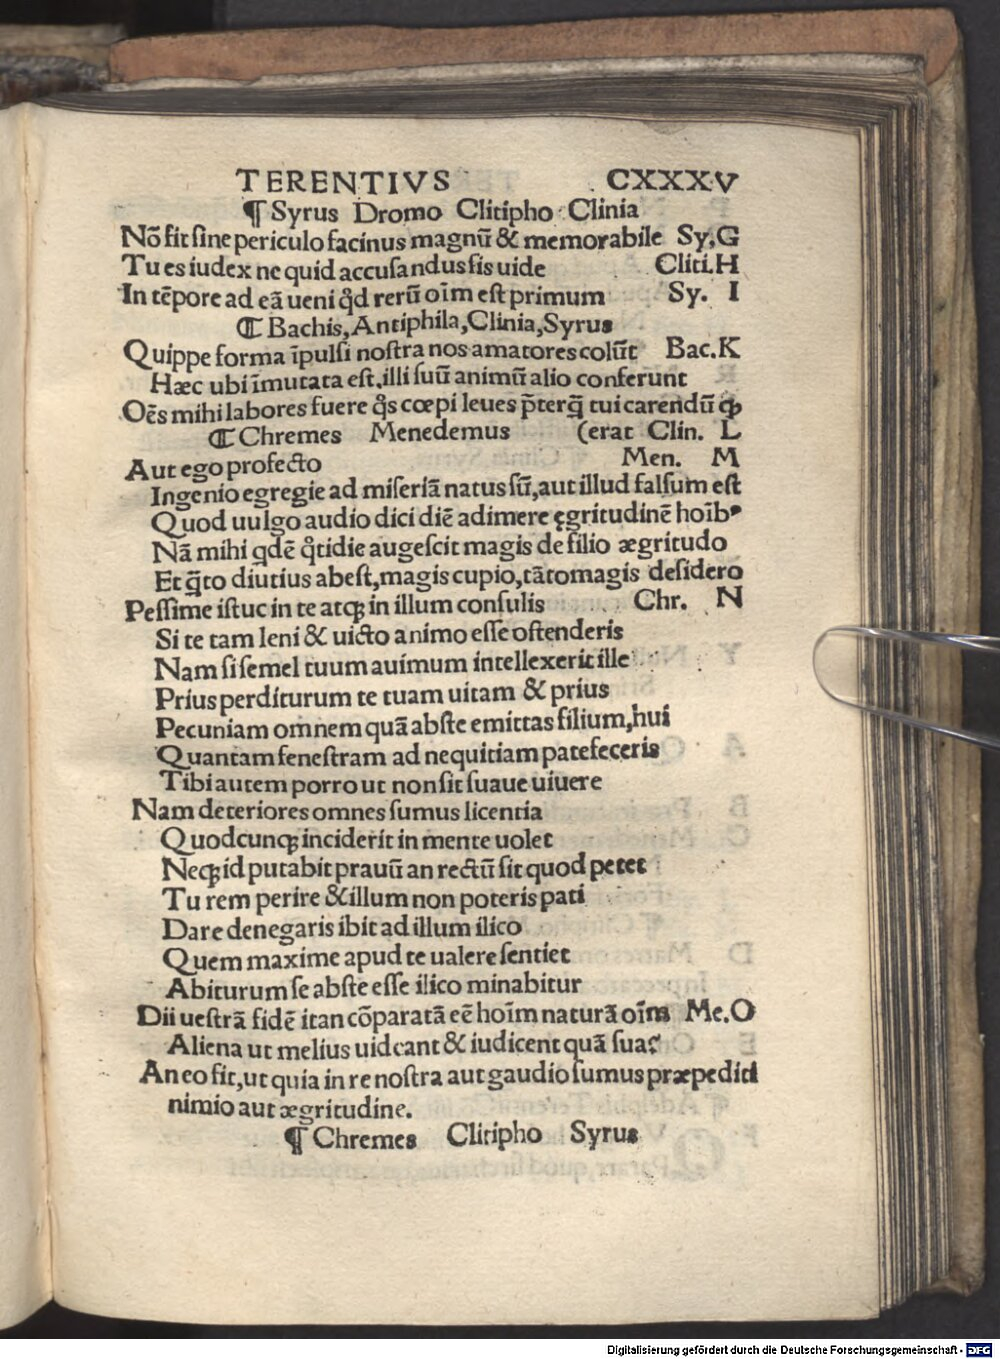 TERENTIVS CXXXV
¶ Syrus Dromo Clitipho Clinia
Nõ fit sine periculo facinus magnũ & memorabile Sy.G
Tu es iudex ne quid accusandus sis uide Cliti.H
In tẽpore ad eã ueni qd̾ rerũ oĩm est primum Sy. I
¶ Bachis, Antiphila, Clinia, Syrus
Quippe forma ĩpulsi nostra nos amatores colũt Bac.K
Hæc ubi ĩmutata est, illi suũ animũ alio conferunt
Oẽs mihi labores fuere q̊s cœpi leues p̃terq̃ tui carendũ ꝙ
¶ Chremes Menedemus (erat Clin. L
Aut ego profecto Men. M
Ingenio egregie ad miseriã natus sũ, aut illud falsum est
Quod uulgo audio dici diẽ adimere ęgritudinẽ hoĩbꝰ
Nã mihi qdẽ q̊tidie augescit magis de filio ægritudo
Et q̃to diutius abest, magis cupio, tãtomagis desidero
Pessime istuc in te atqꝫ in illum consulis Chr. N
Si te tam leni & uicto animo esse ostenderis
Nam si semel tuum auimum intellexerit ille
Prius perditurum te tuam uitam & prius
Pecuniam omnem quã abste emittas filium, hui
Quantam fenestram ad nequitiam patefeceris
Tibi autem porro ut non sit suaue uiuere
Nam deteriores omnes sumus licentia
Quodcunqꝫ inciderit in mente uolet
Neqꝫ id putabit prauũ an rectũ sit quod petet
Tu rem perire & illum non poteris pati
Dare denegaris ibit ad illum ilico
Quem maxime apud te ualere sentiet
Abiturum se abste esse ilico minabitur
Dii uestrã fidẽ itan cõparatã eẽ hoĩm naturã oĩm Me.O
Aliena ut melius uideant & iudicent quã sua?
An eo fit, ut quia in re nostra aut gaudio sumus præpediti
nimio aut ægritudine.
¶ Chremes Clitipho Syrus
Digitalisierung gefördert durch die Deutsche Forschungsgemeinschaft - DFG